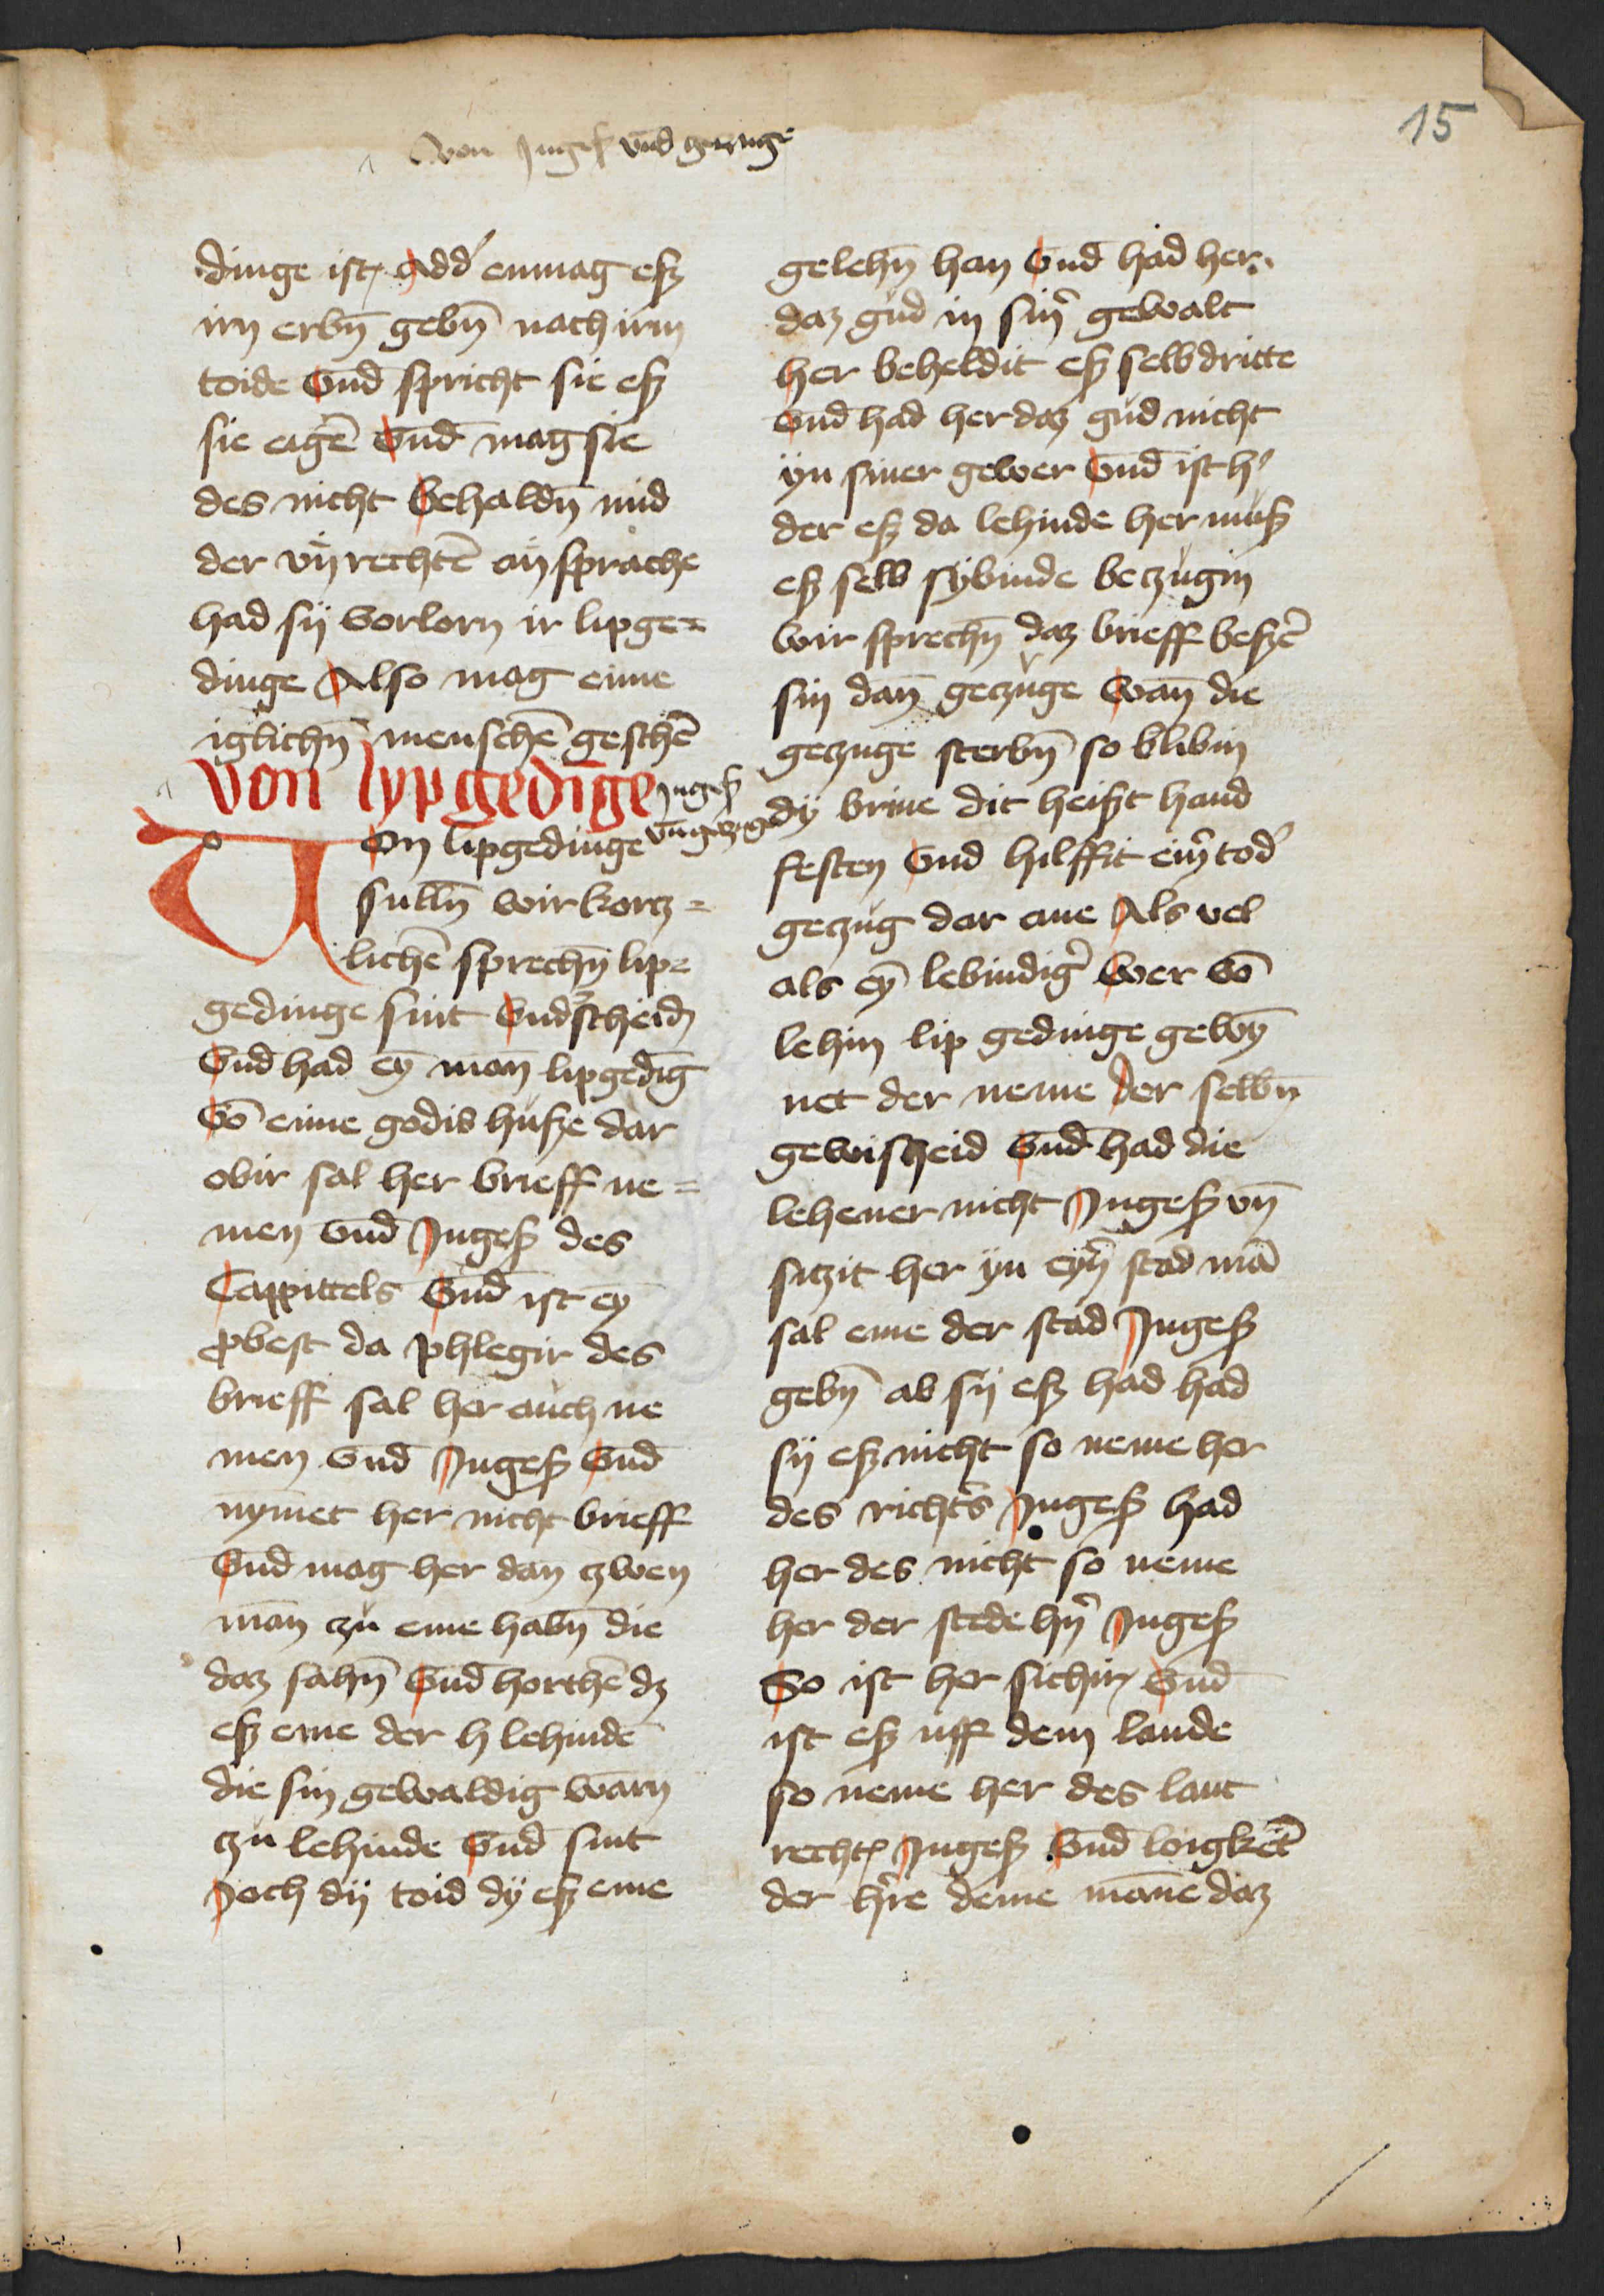 15
von Jngeß vnd gezuge
dinge ist, Add' enmag eß
irn erbn̄ gebn̄ nach irm
toide Vnd̄ spricht sie eß
sie eigē Vnd̄ mag sie
des nicht behaldn̄ mid
der vn̄rechtē an sprache
had sÿ vorlorn ir lipge=
dinge Also mag eime
iglichn̄ menschē geschē
Von lypgedīge Jngeß
vn̄ gezuge
Von lipgedinge
sulln̄ wir kortz=
lichē sprechn̄ lip=
gedinge sint Vnd'scheidn
Vnd̄ had eȳ man lipgedīg
Vō eime godis huße dar
obir sal her brieff ne=
men Vnd̄ Jngeß des
Cappittels Vnd̄ ist eȳ
pbest da phlegir des
brieff sal her auch ne
men Vnd̄ Jngeß Vnd̄
nȳmet her nicht brieff
Vnd̄ mag her dan zwen
man zu eme habn̄ die
daz sahn̄ Vnd̄ horthē dz
eß eme der h lehinde
die sin gewaldig warn
zu lehinde Vnd̄ sint
Joch dÿ toid dÿ eß eme
gelehn̄ han Vnd̄ had her
daz gud in sin̄ gewalt
her beheldit eß selbdritte
Vnd̄ had her daz gud nicht
ÿn siner gewer Vnd̄ ist h'
der eß da lehinde her muß
eß selb sÿbinde bezugin
wir sprechn̄ daz brieff beßē
sin dan̄ gezuge Wan̄ die
gezuge sterbn̄ so blibin
dÿ brine dit heißt hand
festen Vnd hilffit eim̄ tod'
gezug dar ane Als vel
als eȳ lebindig' Wer Vō
lehin lip gedinge gewȳ
net der neme der selbn̄
gewischeid Vnd̄ had die
lehener nicht Jngeß vn̄
sitzit her ÿn eyn̄ stad mā
sal eme der stad Jngeß
gebn̄ ab sÿ eß had had
sÿ eß nicht so neme her
des richt's Jngeß had
her des nicht so neme
her der stede hn̄ Jngeß
So ist her sichir, Vnd̄
ist eß uff dem lande
so neme her des lant
rechts Jngeß Vnd̄ loigkēt
der h're deme mane daz